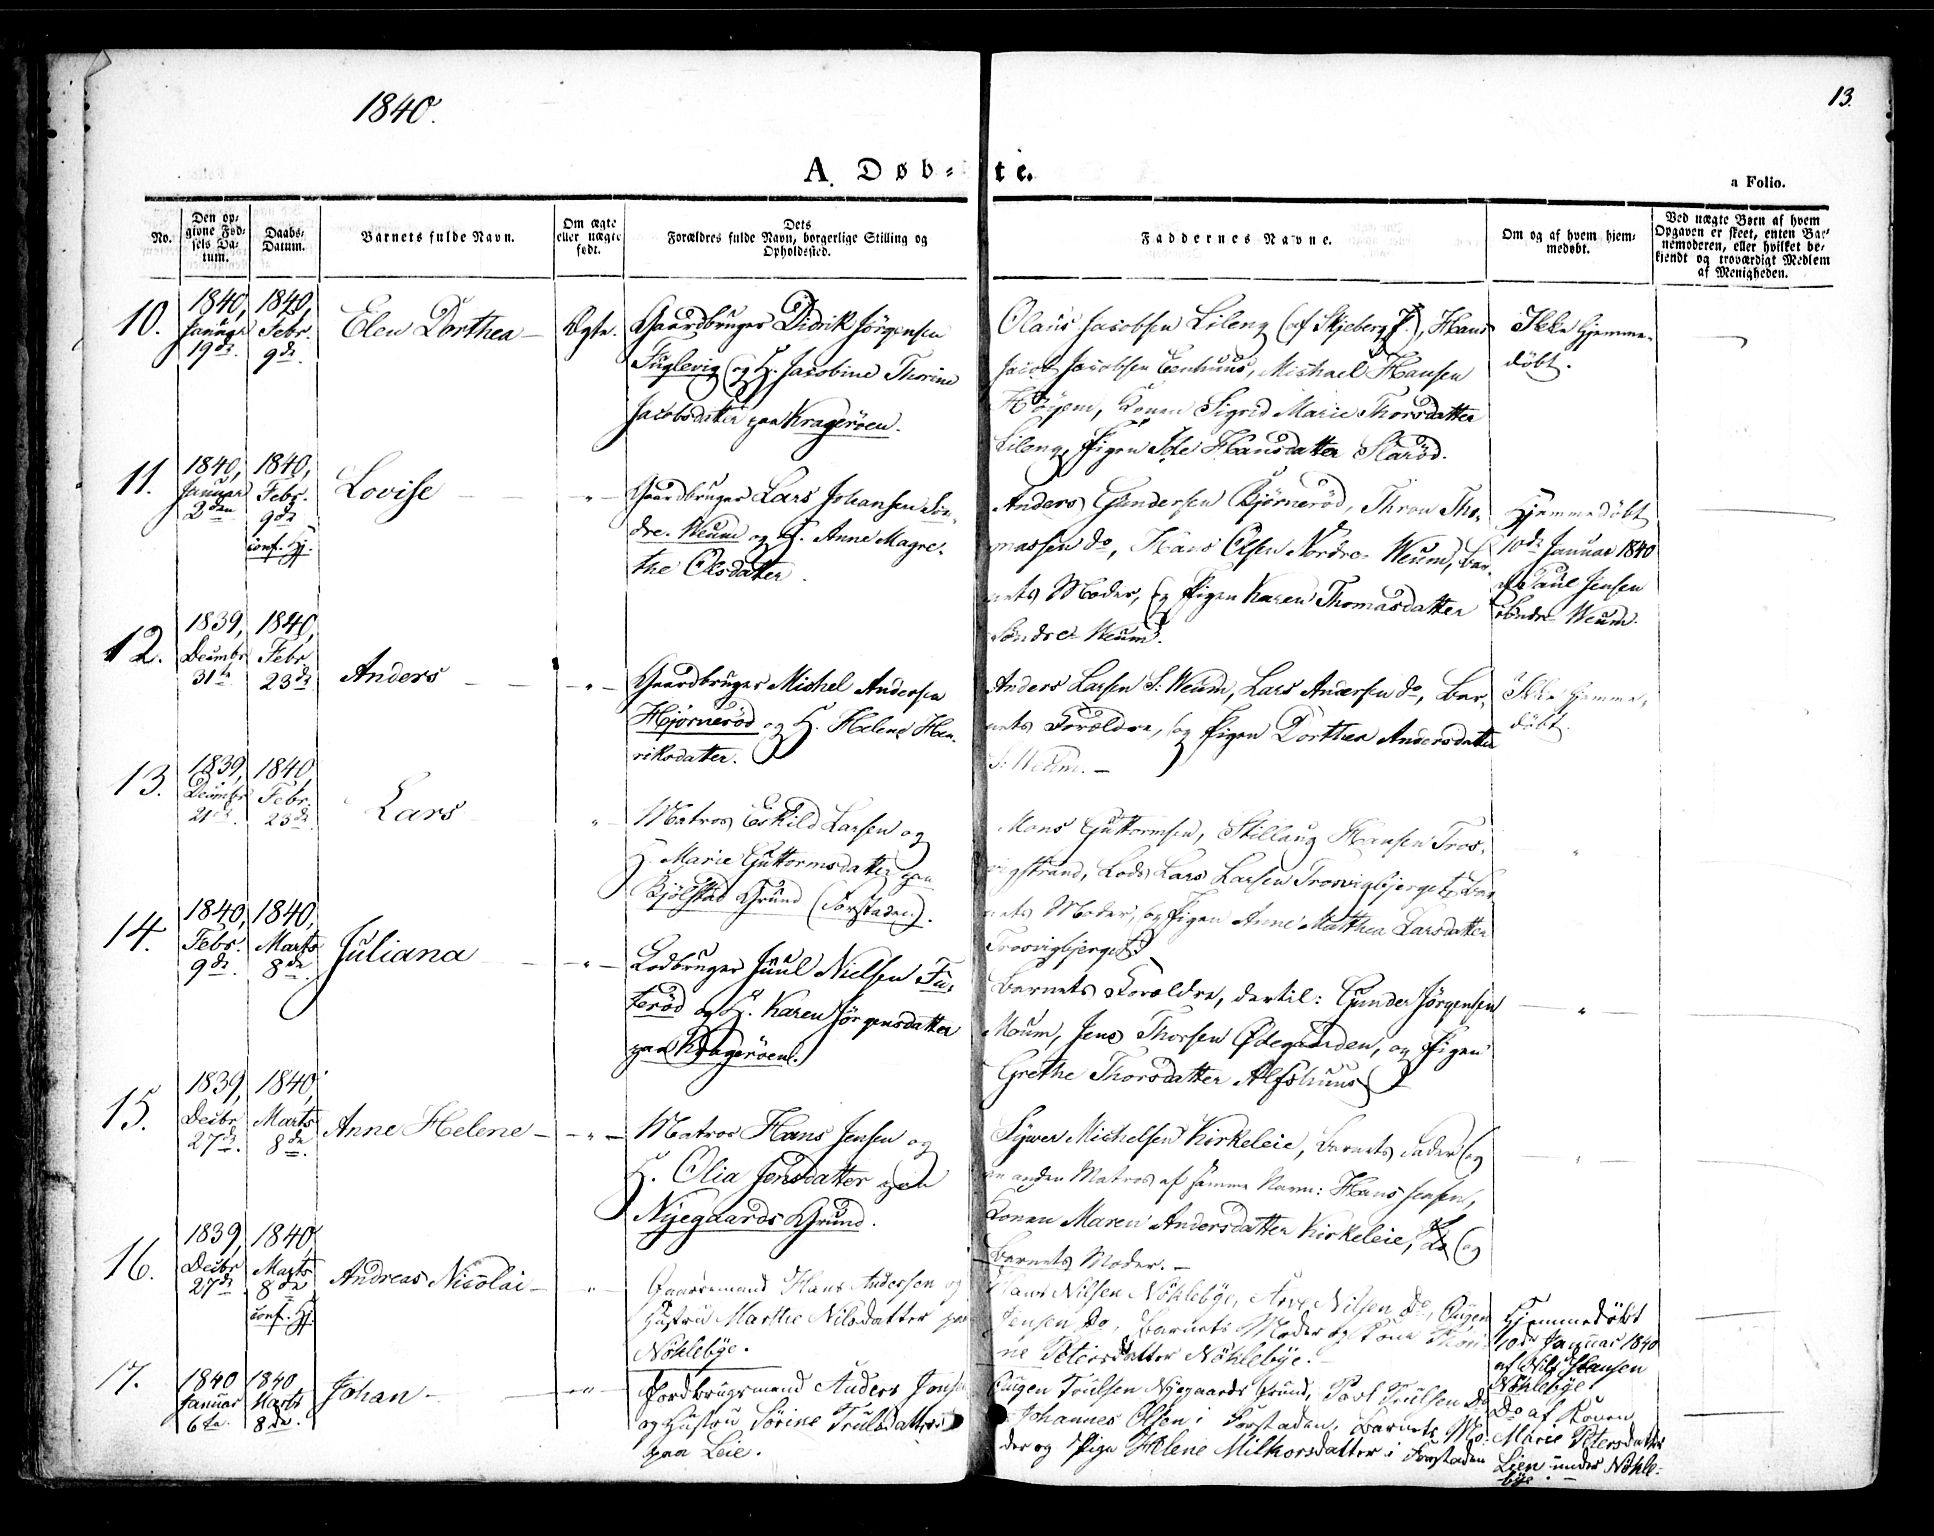 1840.
13.
A. Døb-te.
a Folio.
No.
Den op-
givne Fød-
sels Da-
tum.
Daabs-
Datum.
Barnets fulde Navn.
Om ægte
eller uægte
født.
Dets
Forældres fulde Navn, borgerlige Stilling og
Opholdssted.
Faddernes Navne.
Om og af hvem hjem-
medøbt.
Ved uægte Børn af hvem
Opgaven er skeet, enten Bar-
nemoderen, eller hvilket be-
kjendt og troværdigt Medlem
af Menigheden.
10.
1840,
Januar
19de
1840,
Febr.
9de
Elen Dorthea
Ægte.
Gaardbruger Didrik Jørgensen
Fuglevig og H. Jacobine Thorine
Jacobsdatter paa Kragerøen.
Olaus Jacobsen Lileng (af Skjeberg P.), Hans
Jacob Jacobsen Eenhuus, Michael Hansen
Høyem, Konen Sigrid Marie Thorsdatter
Lileng, Pigen Idе Hansdatter Slarød.
Ikke hjemme-
døbt.
11.
1840,
Januar
2den
1840,
Febr.
9de
Conf. Hj.
Lovise
"
Gaardbruger Lars Johansen Søn-
dre-Weum og H. Anne Magre-
the Olsdatter.
Anders Gundersen Bjørnerød, Thron Tho-
massen do, Hans Olsen Nordre-Weum, Bar-
nets Moder, og Pigen Karen Thomasdatter
Søndre-Weum.
Hjemmedøbt
10de Januar 1840
af Paul Jensen
Søndre Weum.
12.
1839,
Decembr
31te
1840,
Febr
23de
Anders
"
Gaardbruger Michel Andersen
Hjørnerød og H. Helene Hen-
riksdatter.
Anders Larsen S: Weum, Lars Andersen do, Bar-
nets Forældre, og Pigen Dorthea Andersdatter
S: Weum.
Ikke hjemme-
døbt.
13.
1839,
Decembr
21de
1840,
Febr.
23de
Lars
"
Matros Eskild Larsen og
H. Marie Guttormsdatter paa
Bjølstad Grund (Forstaden).
Mons Guttormsen, Stillaug Hansen Tros-
vigstrand, Lods Lars Larsen Trosvigbjerget, Bar-
nets Moder, og Pigen Anne Matthea Larsdatter
Trosvigbjerget.
"
14.
1840,
Febr.
9de
1840,
Marts
8de
Juliana
"
Lodbruger Juul Nielsen Fu-
terød og H. Karen Jørgensdatter
paa Kragerøen.
Barnets Forældre, dertil: Gunder Jørgensen
Moum, Jens Thorsen Ødegaarden, og Pigen
Grethe Thorsdatter Alfshuus
"
15.
1839,
Decbr
27de
1840,
Marts
8de
Anne Helene
"
Matros Hans Jensen og
H. Olia Jensdatter paa
Nyegaards Grund.
Syver Michelsen Kirkeleie, Barnets Fader og
en anden Matros af samme Navn: Hans Jensen,
Konen Maren Andersdatter Kirkeleie, og
Barnets Moder.
"
16.
1839,
Decbr
27de
1840,
Marts
8de
Conf. Hj.
Andreas Nicolai
"
Gaardmand Hans Andersen og
Hustru Marthe Nilsdatter paa
Nøklebye.
Hans Nilsen Nøklebye, Arve Nilsen Do, Eugen
Jensen Do, Barnets Moder og Kone Thori-
ne Petersdatter Nøklebye.
Hjemmedøbt
10de Januar 1840
af Nils Hansen
Nøklebye
17.
1840
Januar
6te
1840
Marts
8de
Johan
"
Jordbrugsmand Anders Jons
og Hustru Sørine Trulsdatter
paa Leie.
Eugen Trulsen Nyegaards Grund, Poul Trulsen Do
Johannes Olsen i Forstaden, Barnets Mo-
der og Pige Helene Milkorsdatter i Forstaden
Do af Konen
Marie Petersdatter
Lien under Nøkle-
bye.